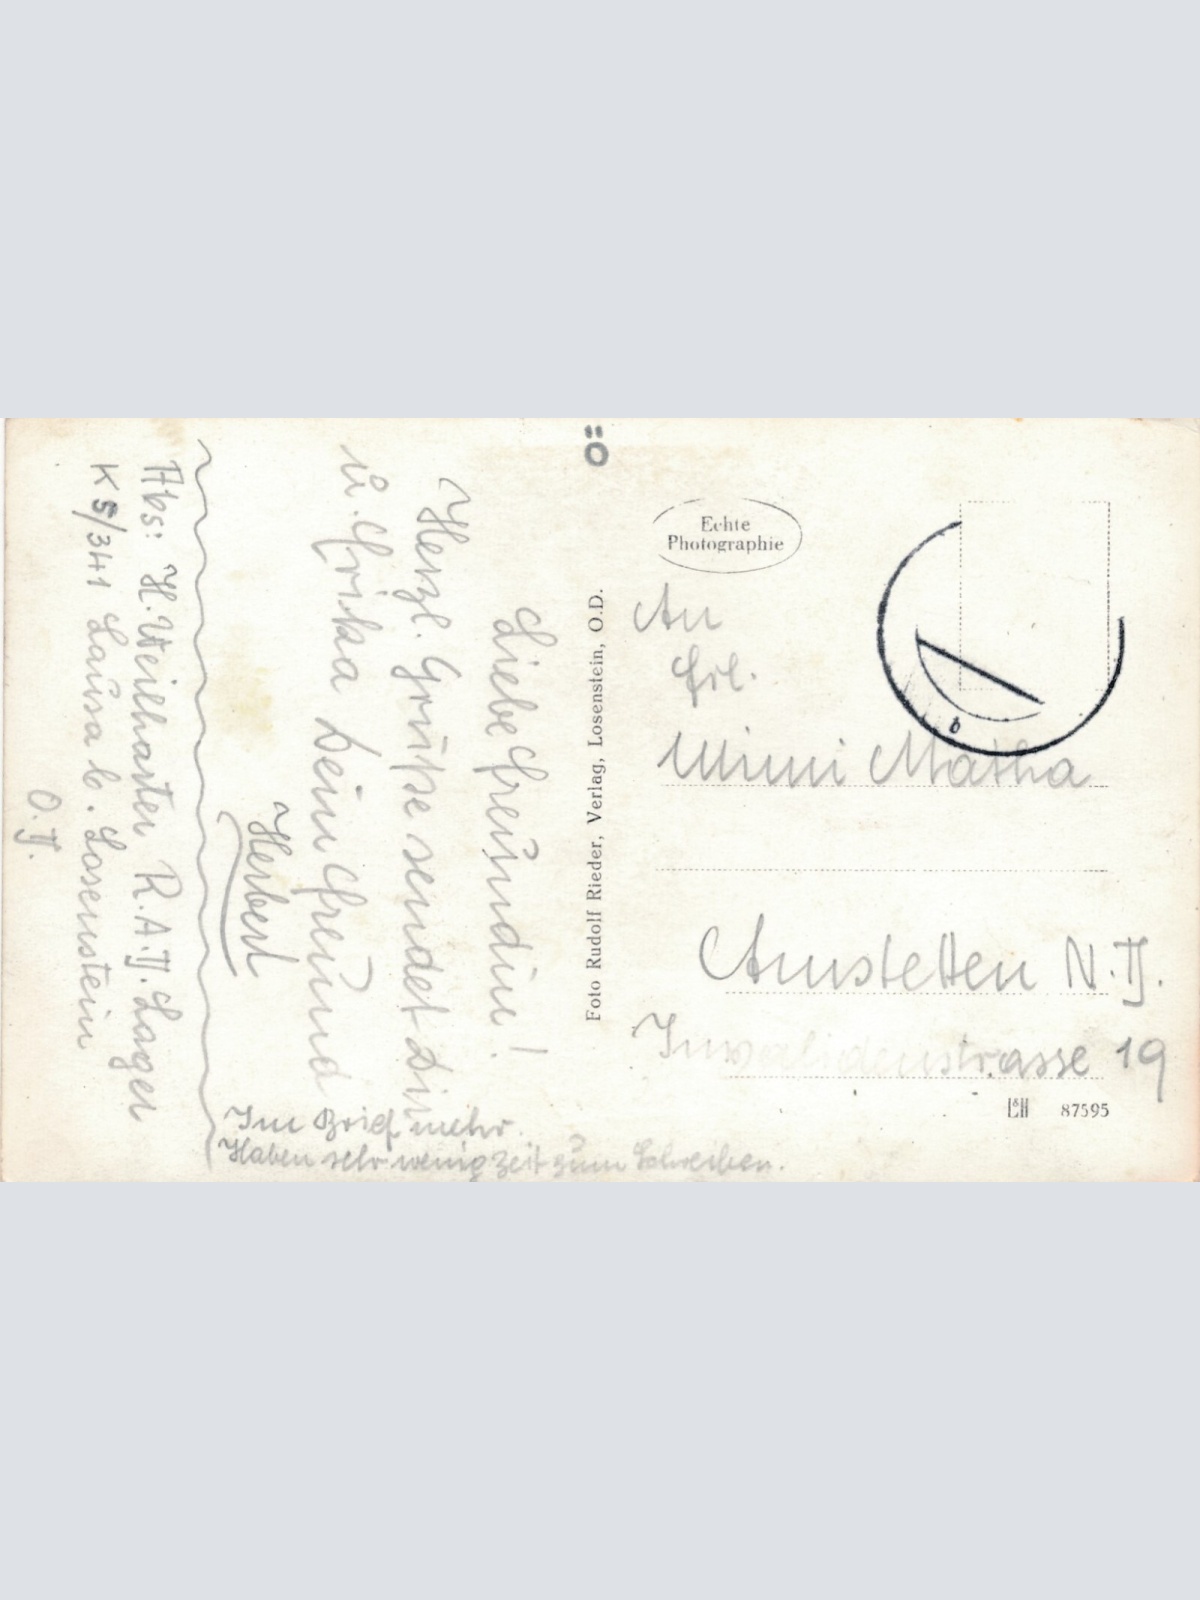 Ö
Echte
Photographie
An
Frl.
Mimi Matha
Amstetten N.D.
Invalidenstrasse 19
L&H 87595
Foto Rudolf Rieder, Verlag, Losenstein, O.D.
Liebe Freundin!
Herzl. Grüße sendet Dir
u. Erika Dein Freund
Herbert
Im Brief mehr.
Haben sehr wenig Zeit zum Schreiben.
Abs: H. Weilharter R.A.D. Lager
K 5/341 Laussa b. Losenstein
O.D.
b